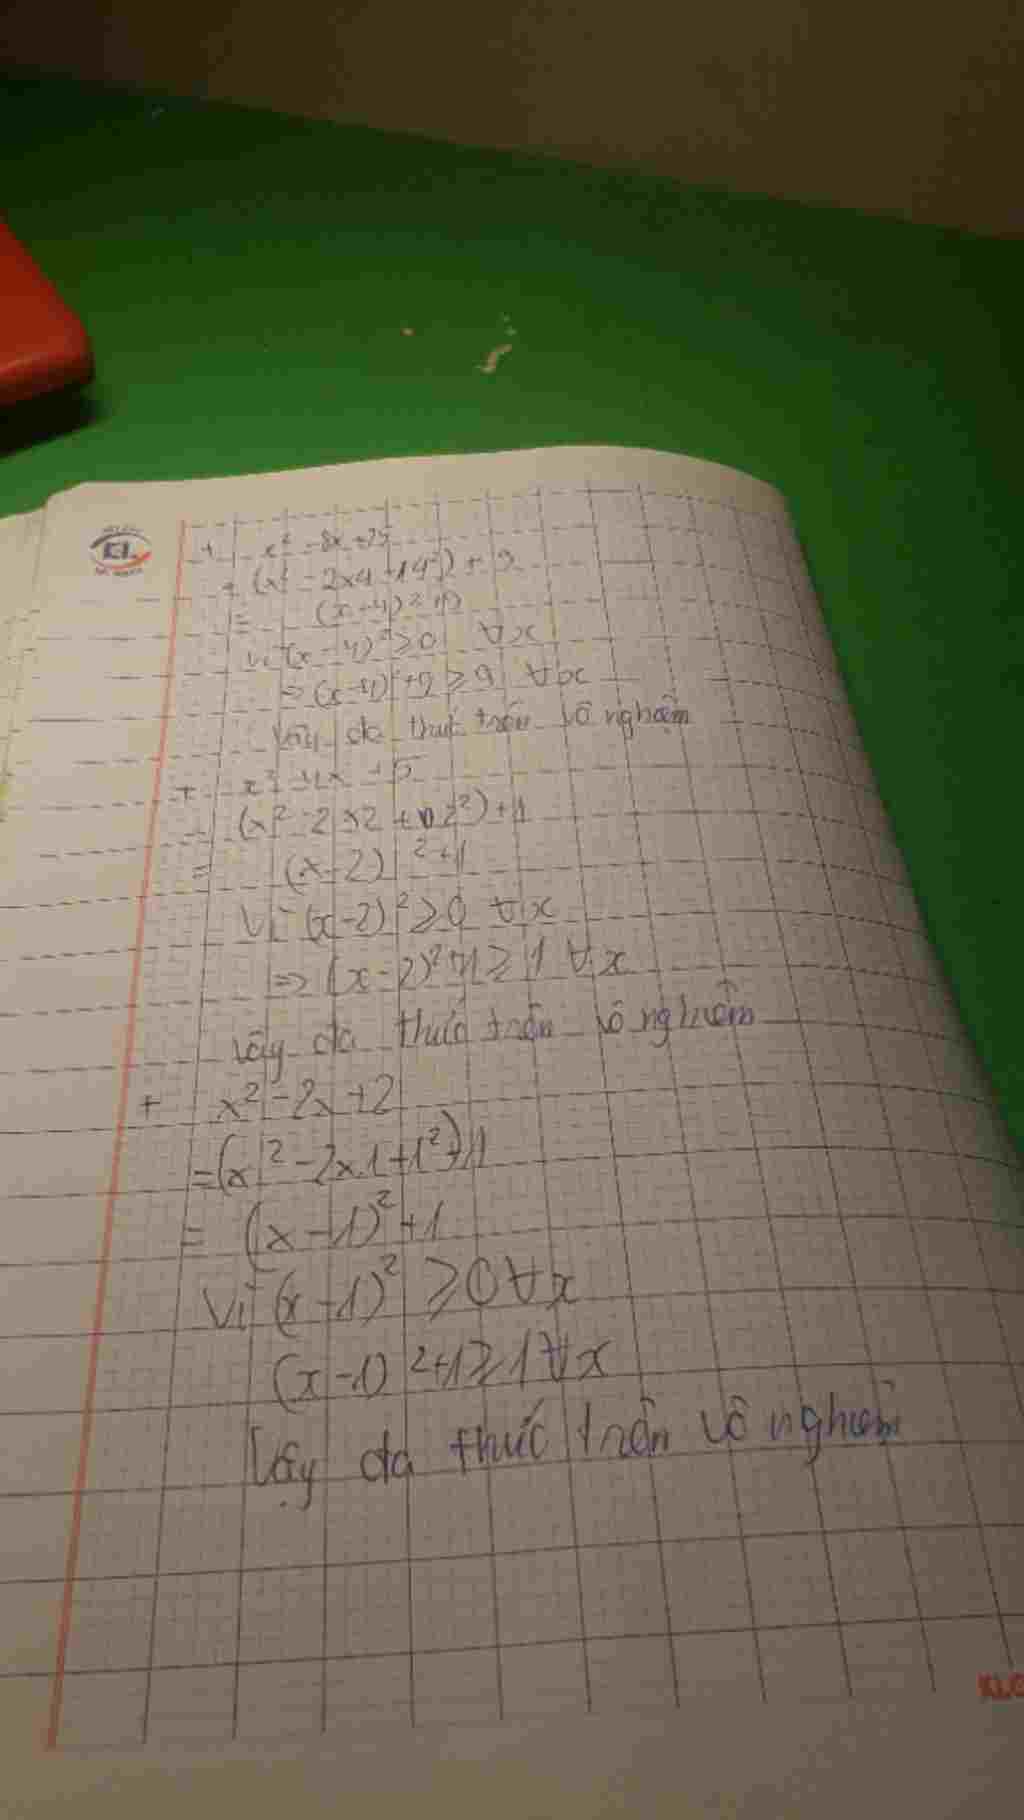 KL
+ x² - 8x + 25
= (x² - 2x4 + 4²) + 9
= (x-4)² + 9
Vì (x-4)² ≥ 0 ∀x
=> (x-4)² + 9 ≥ 9 ∀x
Vậy đa thức trên vô nghiệm
+ x² - 4x + 5
= (x² - 2x2 + 2²) + 1
= (x-2)² + 1
Vì (x-2)² ≥ 0 ∀x
=> (x-2)² + 1 ≥ 1 ∀x
Vậy đa thức trên vô nghiệm
+ x² - 2x + 2
= (x² - 2x.1 + 1²) + 1
= (x-1)² + 1
Vì (x-1)² ≥ 0 ∀x
(x-1)² + 1 ≥ 1 ∀x
Vậy đa thức trên vô nghiệm
KLO